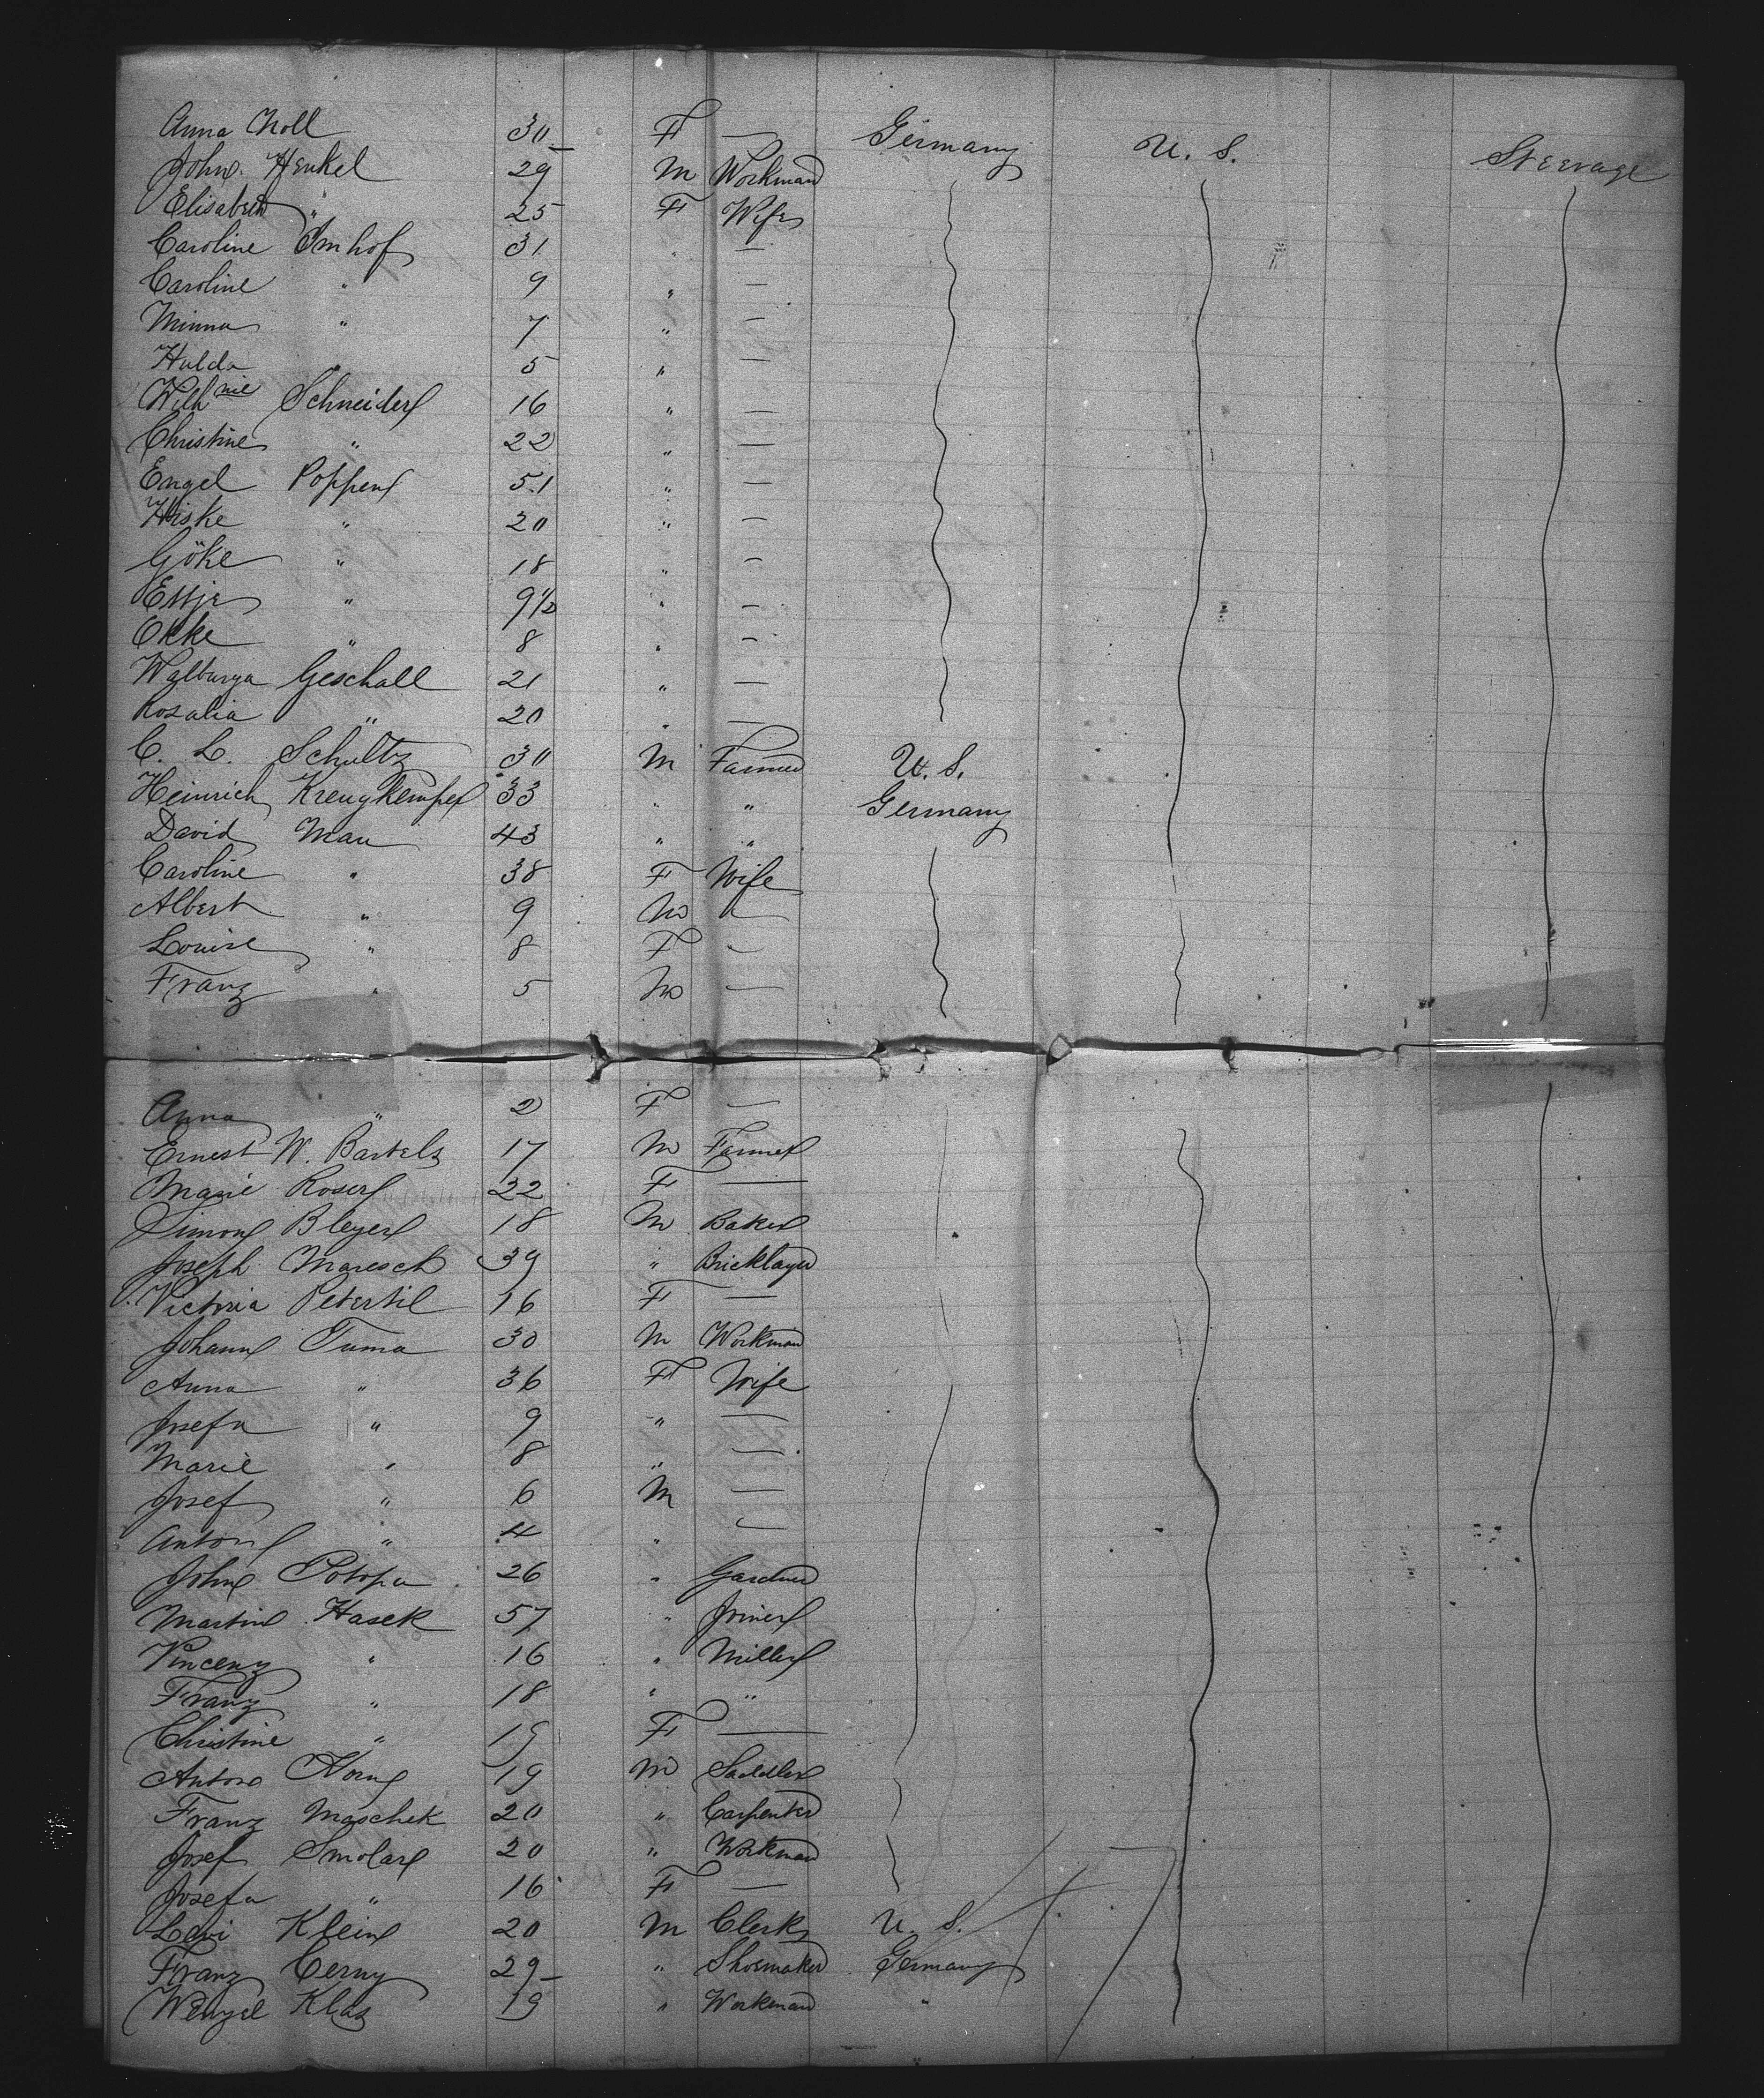 Anna Noll 30 F — Germany U. S. Steerage
John Henkel 29 M Workman
Elisabeth " 25 F Wife
Caroline Imhof 31 " —
Caroline " 9 " —
Minna " 7 " —
Hulda " 5 " —
Wilhnie Schneider 16 " —
Christine " 22 " —
Engel Poppen 51 " —
Hiske " 20 " —
Göke " 18 " —
Etsje " 9 1/2 " —
Okke " 8 " —
Walburga Geschall 21 " —
Rosalia " 20 " —
C. L. Schultz 30 M Farmer U. S.
Heinrich 33 " " Germany
David Mau 43 " "
Caroline " 38 F Wife
Albert " 9 M —
Louise " 8 F —
Franz " 5 M —
Anna " 2 F —
Ernest W. Bartels 17 M Farmer
Marie Roser 22 F —
Simon Bleyer 18 M Baker
Joseph Maresch 39 " Bricklayer
Victoria Petertil 16 F —
Johann Tuma 30 M Workman
Anna " 36 F Wife
Josefa " 9 " —
Marie " 8 " —
Josef " 6 M —
Anton " 4 " —
John Potopa 26 " Gardner
Martin Hasek 57 " Joiner
Vincenz " 16 " Miller
Franz " 18 " "
Christine " 19 F —
Anton Horny 19 M Saddler
Franz Maschek 20 " Carpenter
Josef Smolar 20 " Workman
Josefa " 16 F —
Levi Klein 20 M Clerk U. S.
Franz Cerny 29 " Shoemaker Germany
Wenzel Klas 19 " Workman "